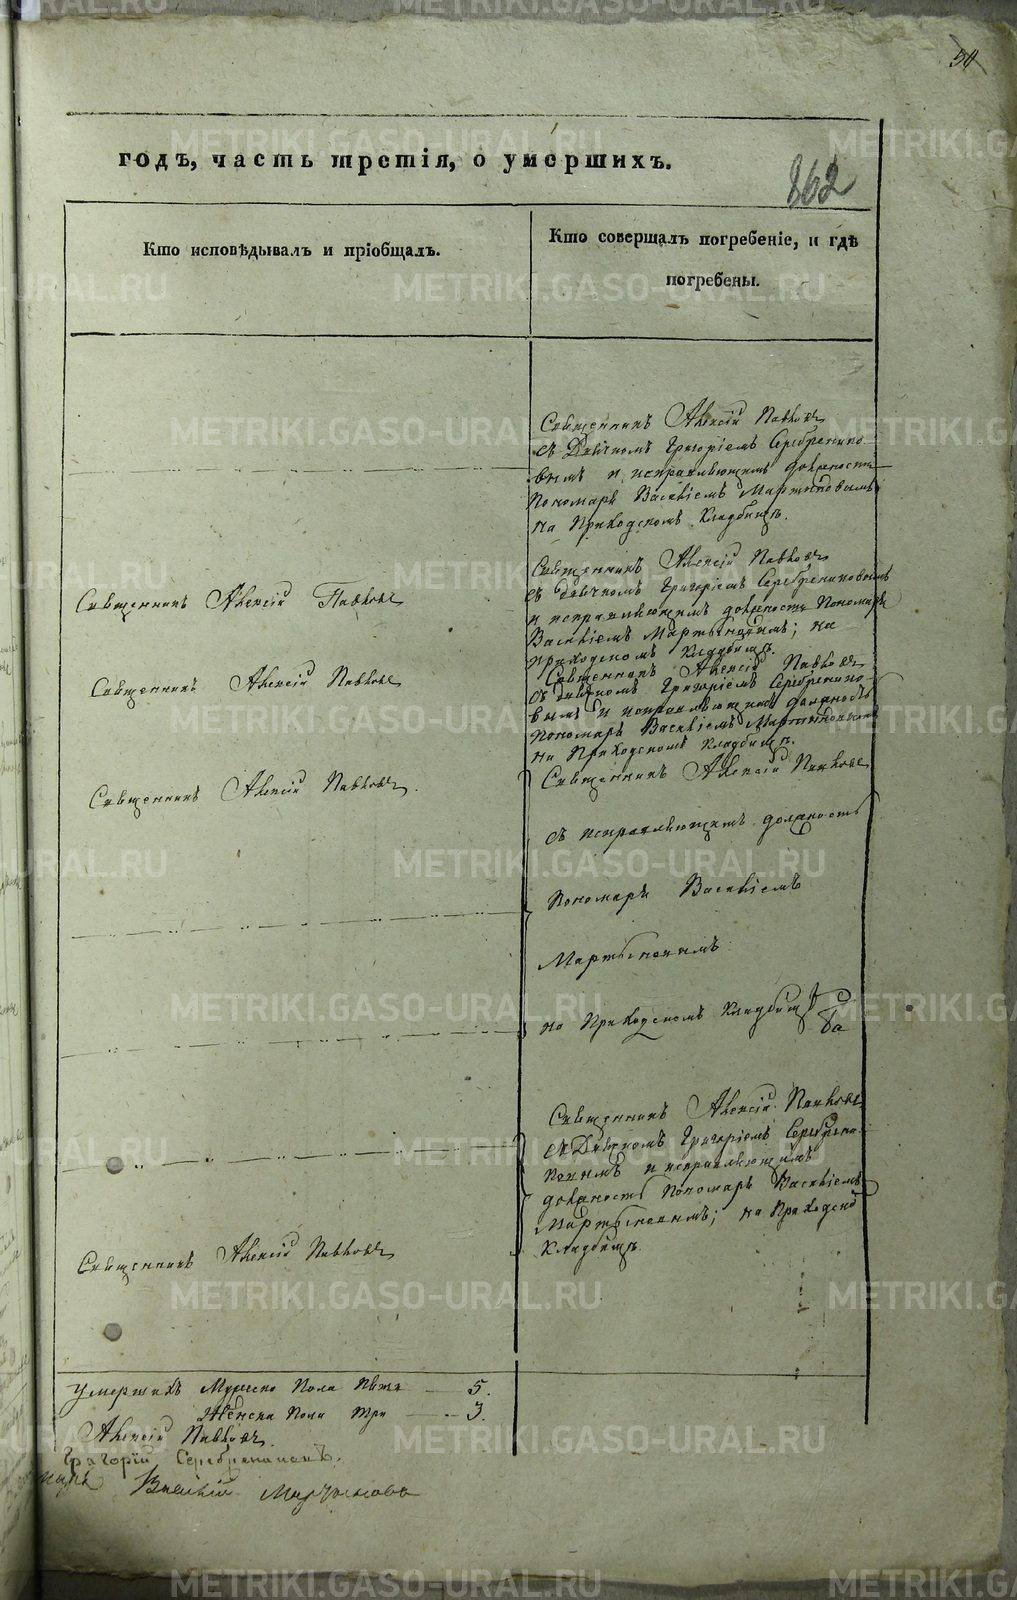 годъ, часть третія, о умершихъ.
862
Кто исповѣдывалъ и пріобщалъ.
Кто совершалъ погребеніе, и гдѣ
погребены.
Священникъ Алексій Павловъ
съ Дьячкомъ Григоріемъ Серебренико-
вымъ и исправляющимъ должность
Пономаря Василіемъ Мартыновымъ
на Приходскомъ Кладбищѣ.
Священникъ Алексій Павловъ
Священникъ Алексій Павловъ
съ дьячкомъ Григоріемъ Серебрениковымъ
и исправляющимъ должность Пономаря
Василіемъ Мартыновымъ; на
приходскомъ Кладбищѣ.
Священникъ Алексій Павловъ
Священникъ Алексій Павловъ
съ дьячкомъ Григоріемъ Серебренико-
вымъ и исправляющимъ должность
Пономаря Василіемъ Мартыновымъ
на Приходскомъ Кладбищѣ.
Священникъ Алексій Павловъ
Священникъ Алексій Павловъ
съ исправляющимъ должность
Пономаря Василіемъ
Мартыновымъ
на Приходскомъ Кладбищѣ
Священникъ Алексій Павловъ
съ Дьячкомъ Григоріемъ Серебрени-
ковымъ и исправляющимъ
должность Пономаря Василіемъ
Мартыновымъ; на Приходскомъ
Кладбищѣ.
Священникъ Алексій Павловъ
Умершихъ Мужеска Пола Пять — 5.
Женска Пола Три — 3.
Алексій Павловъ.
Григорій Серебрениковъ.
Василій Мартыновъ
METRIKI.GASO-URAL.RU